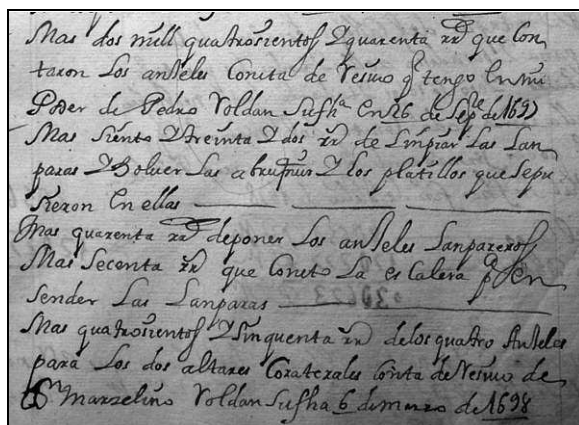 Mas dos mill quatrosientos Y quarenta rr^s que Con
taron Los anJeles Conita de Resivo q^e tengo En mi
Poder de Pedro Roldan Sufh^a En 26 de Sep^e de 1697
Mas siento Y treinta Y dos rr^s de Linpiar Las Lan
paras Y Bolver Las abruñir Y los platillos que Sepu
sieron En ellas
Mas quarenta rr^s deponer Los anJeles Lanpareros
Mas Secenta rr^s que Costo La es Calera p^a En
sender Las Lanparas
Mas quatrosientos Y Sinquenta rr^s delos quatro AnJeles
para Los dos altares Coraterales Conta de Resivo de
Marzelino Roldan Sufha 6 de marzo de 1698